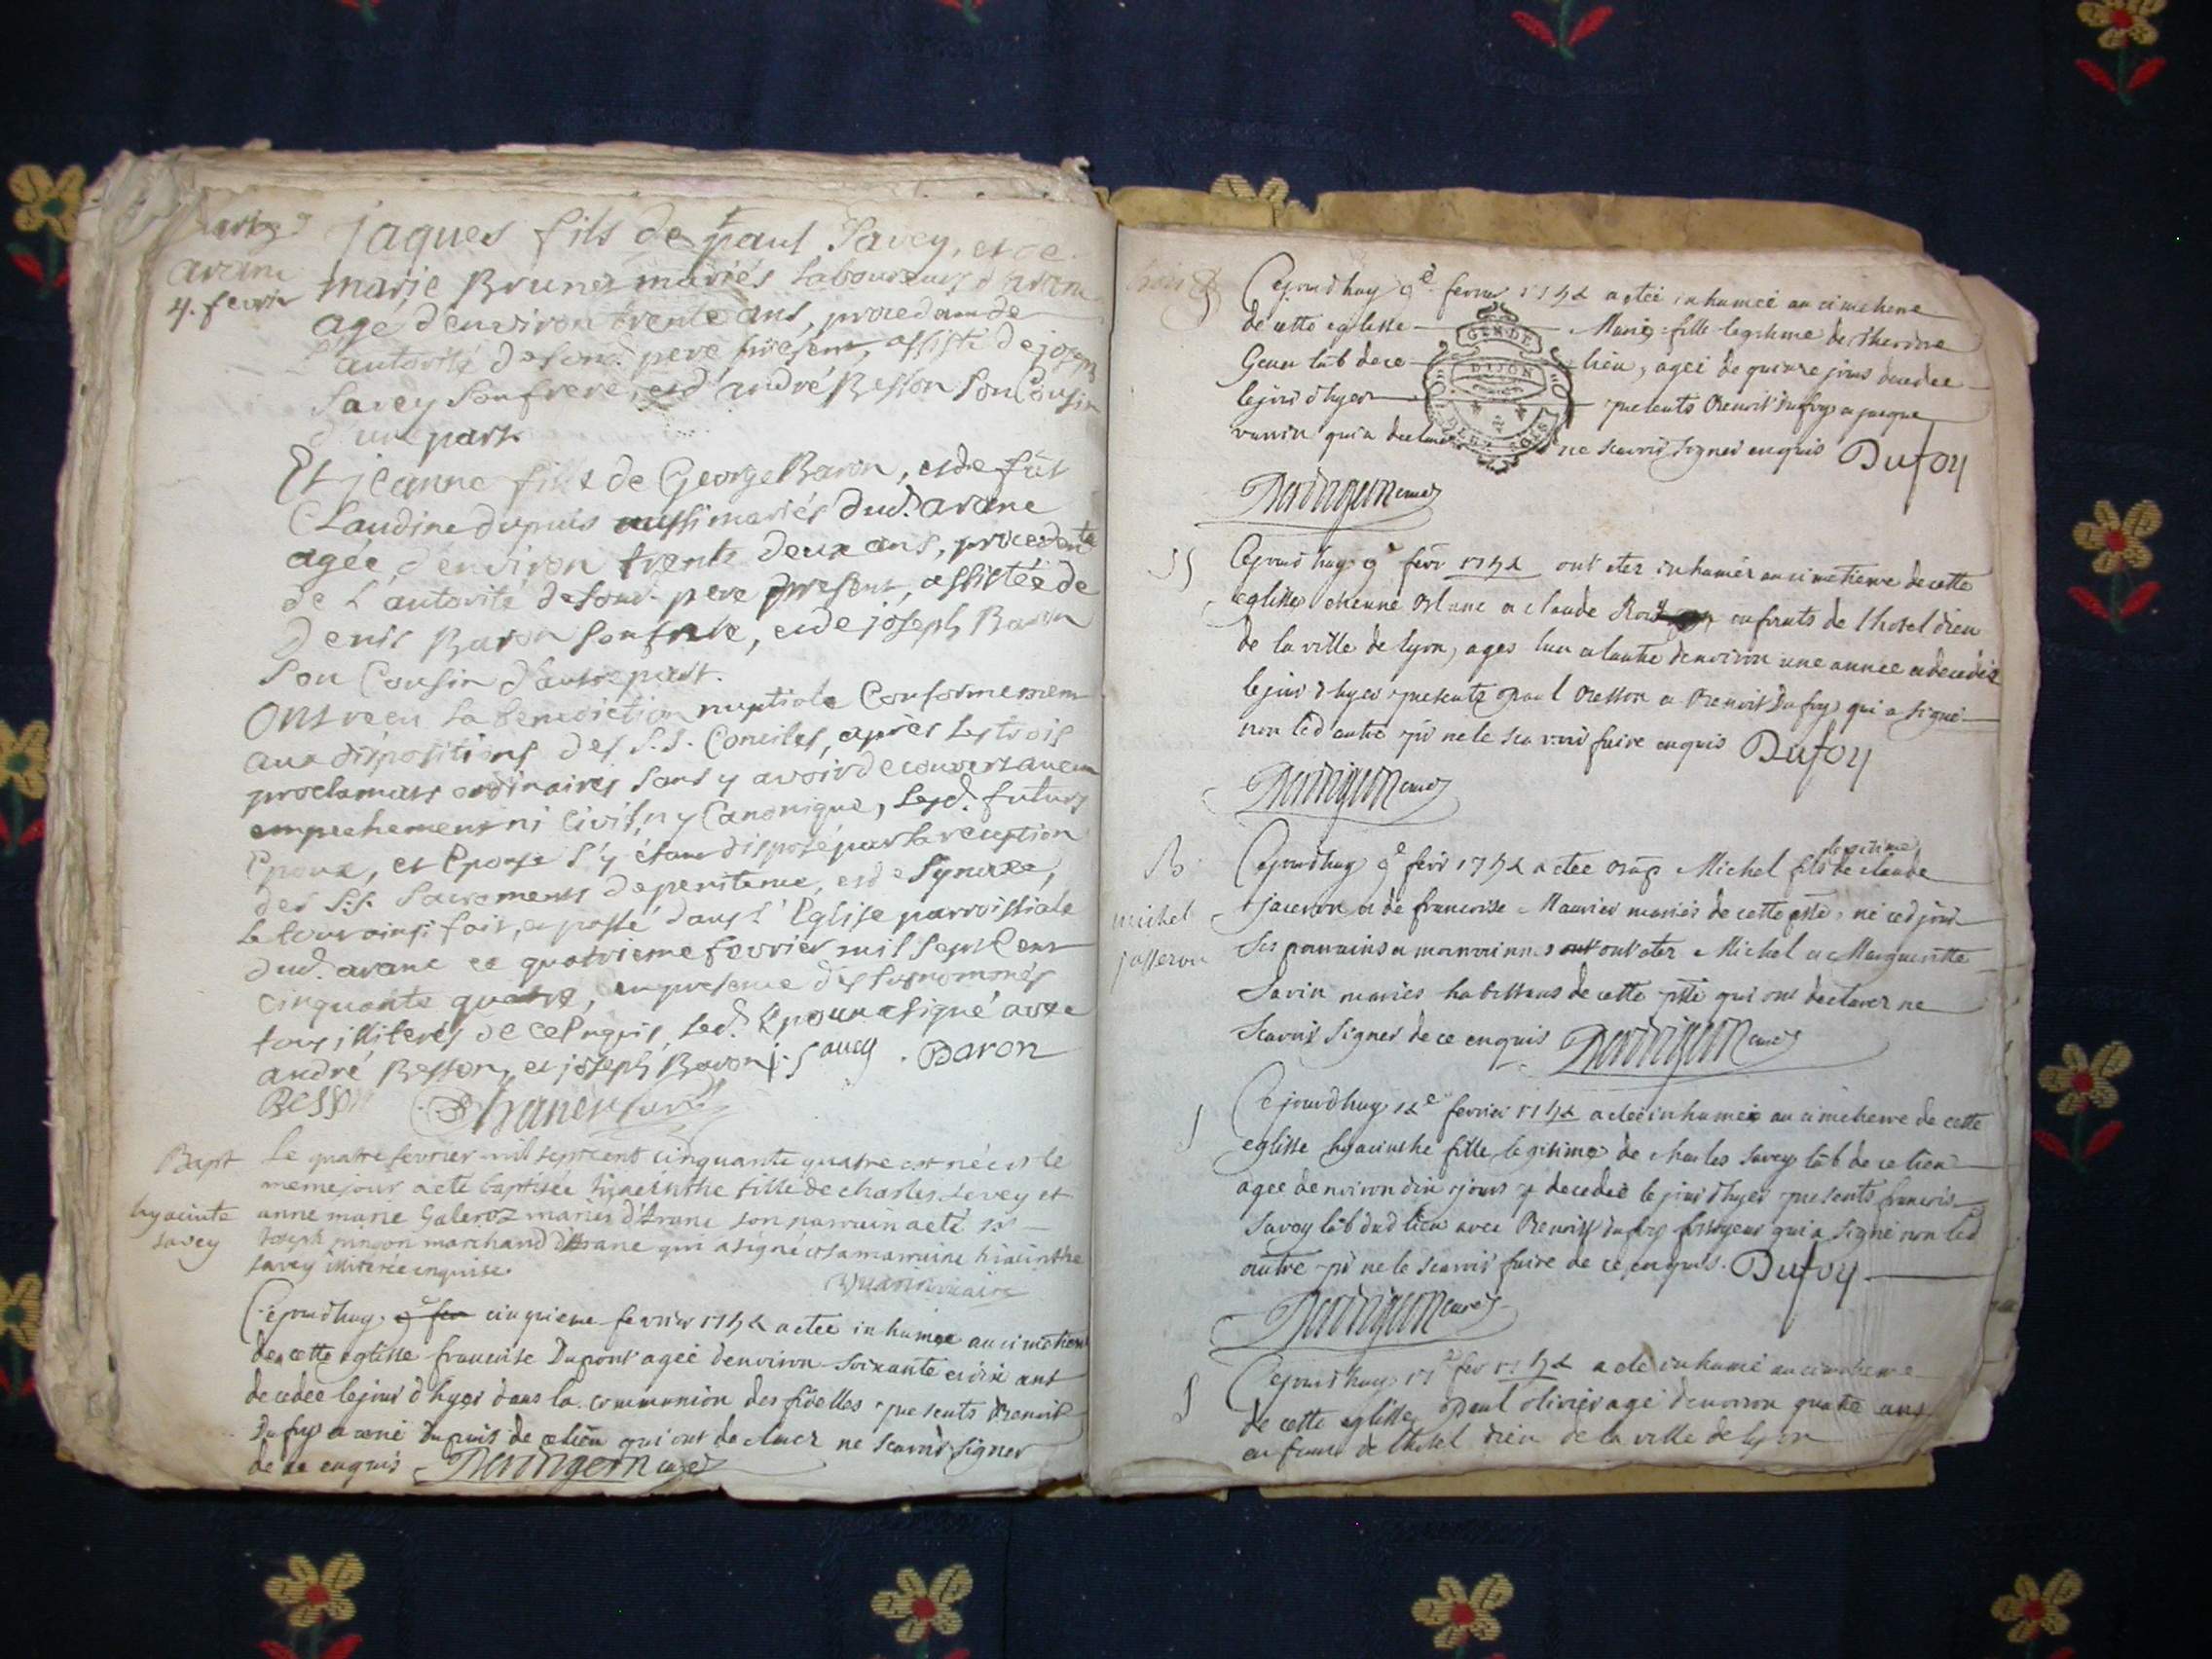 Mariage
arane
4. fevrier
jaques fils de paul Savey, et de
marie Brunet mariés Laboureurs d'arane
agé d'environ trente ans, procedam de
L'autorité de sond. pere present, assisté de joseph
Savey son frere, et d'andré Besson son Cousin
d'une part.
Et jeanne fille de George Baron, et de fût
Claudine dupuis aussi mariés dud. arane
agée d'environ trente deux ans, procedante
de L'autorité de sond. pere present, assistée de
Denis Baron son frere, et de joseph Baron
son Cousin d'autre part.
Ont receu La benediction nuptiale Conformement
aux dispositions des S.S. Conciles, après Les trois
proclamats ordinaires sans y avoir decouvert aucun
empechement ni Civil, ny Canonique, Lesd. futurs
Epoux, et Epouse s'y étant disposé par la reception
des S.S. Sacrements de penitence, et de Synaxe,
Le tout ainsi fait, et passé dans L'Eglise parroissiale
dud. arane ce quatrieme fevrier mil sept Cent
cinquante quatre, en presence des susnommés
tous illiterés de ce Enquis, Led. Epoux a signé avec
andré Besson, et joseph Baron j. Savey . Baron
Besson
Bapt
hyacinte
savey
Le quatre fevrier mil sept cent cinquante quatre est née et le
meme jour a eté baptisée hiacinthe fille de charles Savey et
anne marie Galeroz mariés d'Arane son parrain a eté sr
Joseph pingon marchand d'Arane qui a signé et sa marraine hiacinthe
Savey illiterée enquise.
Cejourdhuy cinquieme fevrier 1754 a etee inhumee au cimetiere
de cette eglisse francoise Dupont agée denviron soixante et dix ans
decedee le jour d'hyer dans la communion des fidelles presents Benoit
Dufoy et Dupuis de ce lieu qui ont declarer ne scavoir signer
de ce enquis
Cejourdhuy 9e fevrier 1754 a etéé inhumeé au cimetiere
de cette eglisse Marie fille legitime de
lab de ce lieu, ageé de quinze jours decedee
le jour d'hyer presents Benoit Dufoy et jacque
qui a declarer ne scavoir signer enquis Dufoy
GEN DE
DIJON
SS
Cejourdhuy 9e fevr 1754 ont eter inhumés au cimetiere de cette
eglisse et claude enfants de l'hotel dieu
de la ville de lyon, ages lun et lautre denviron une annee et decedés
le jour d'hyer presents paul Besson et Benoit Dufoy qui a signé
non led autre pñt ne le scavoir faire enquis Dufoy
B
michel
jasseron
Cejourdhuy 9e fevr 1754 a etee Bap Michel fils legitime de claude
jaceron et de francoise Maurier mariés de cette psse, né ced jour
Ses parrains et marraines ont eter Michel et Margueritte
Savin mariés habittans de cette psse qui ont declarer ne
Scavoir signer de ce enquis
S
Cejourdhuy 12e fevrier 1754 a eteé inhumeé au cimetiere de cette
eglisse hyacinthe fille legitime de charles Savey lab de ce lieu
agee denviron dix jours et decedeé le jour d'hyer presents francois
Savey lab dud lieu avec Benoit Dufoy fossoyeur qui a signé non led
autre pñt ne le scavoir faire de ce enquis. Dufoy
S
Cejourdhuy fev 1754 a eté inhumé au cimetiere
de cette eglisse paul olivier agé denviron quatre ans
enfant de l'hotel dieu de la ville de lyon